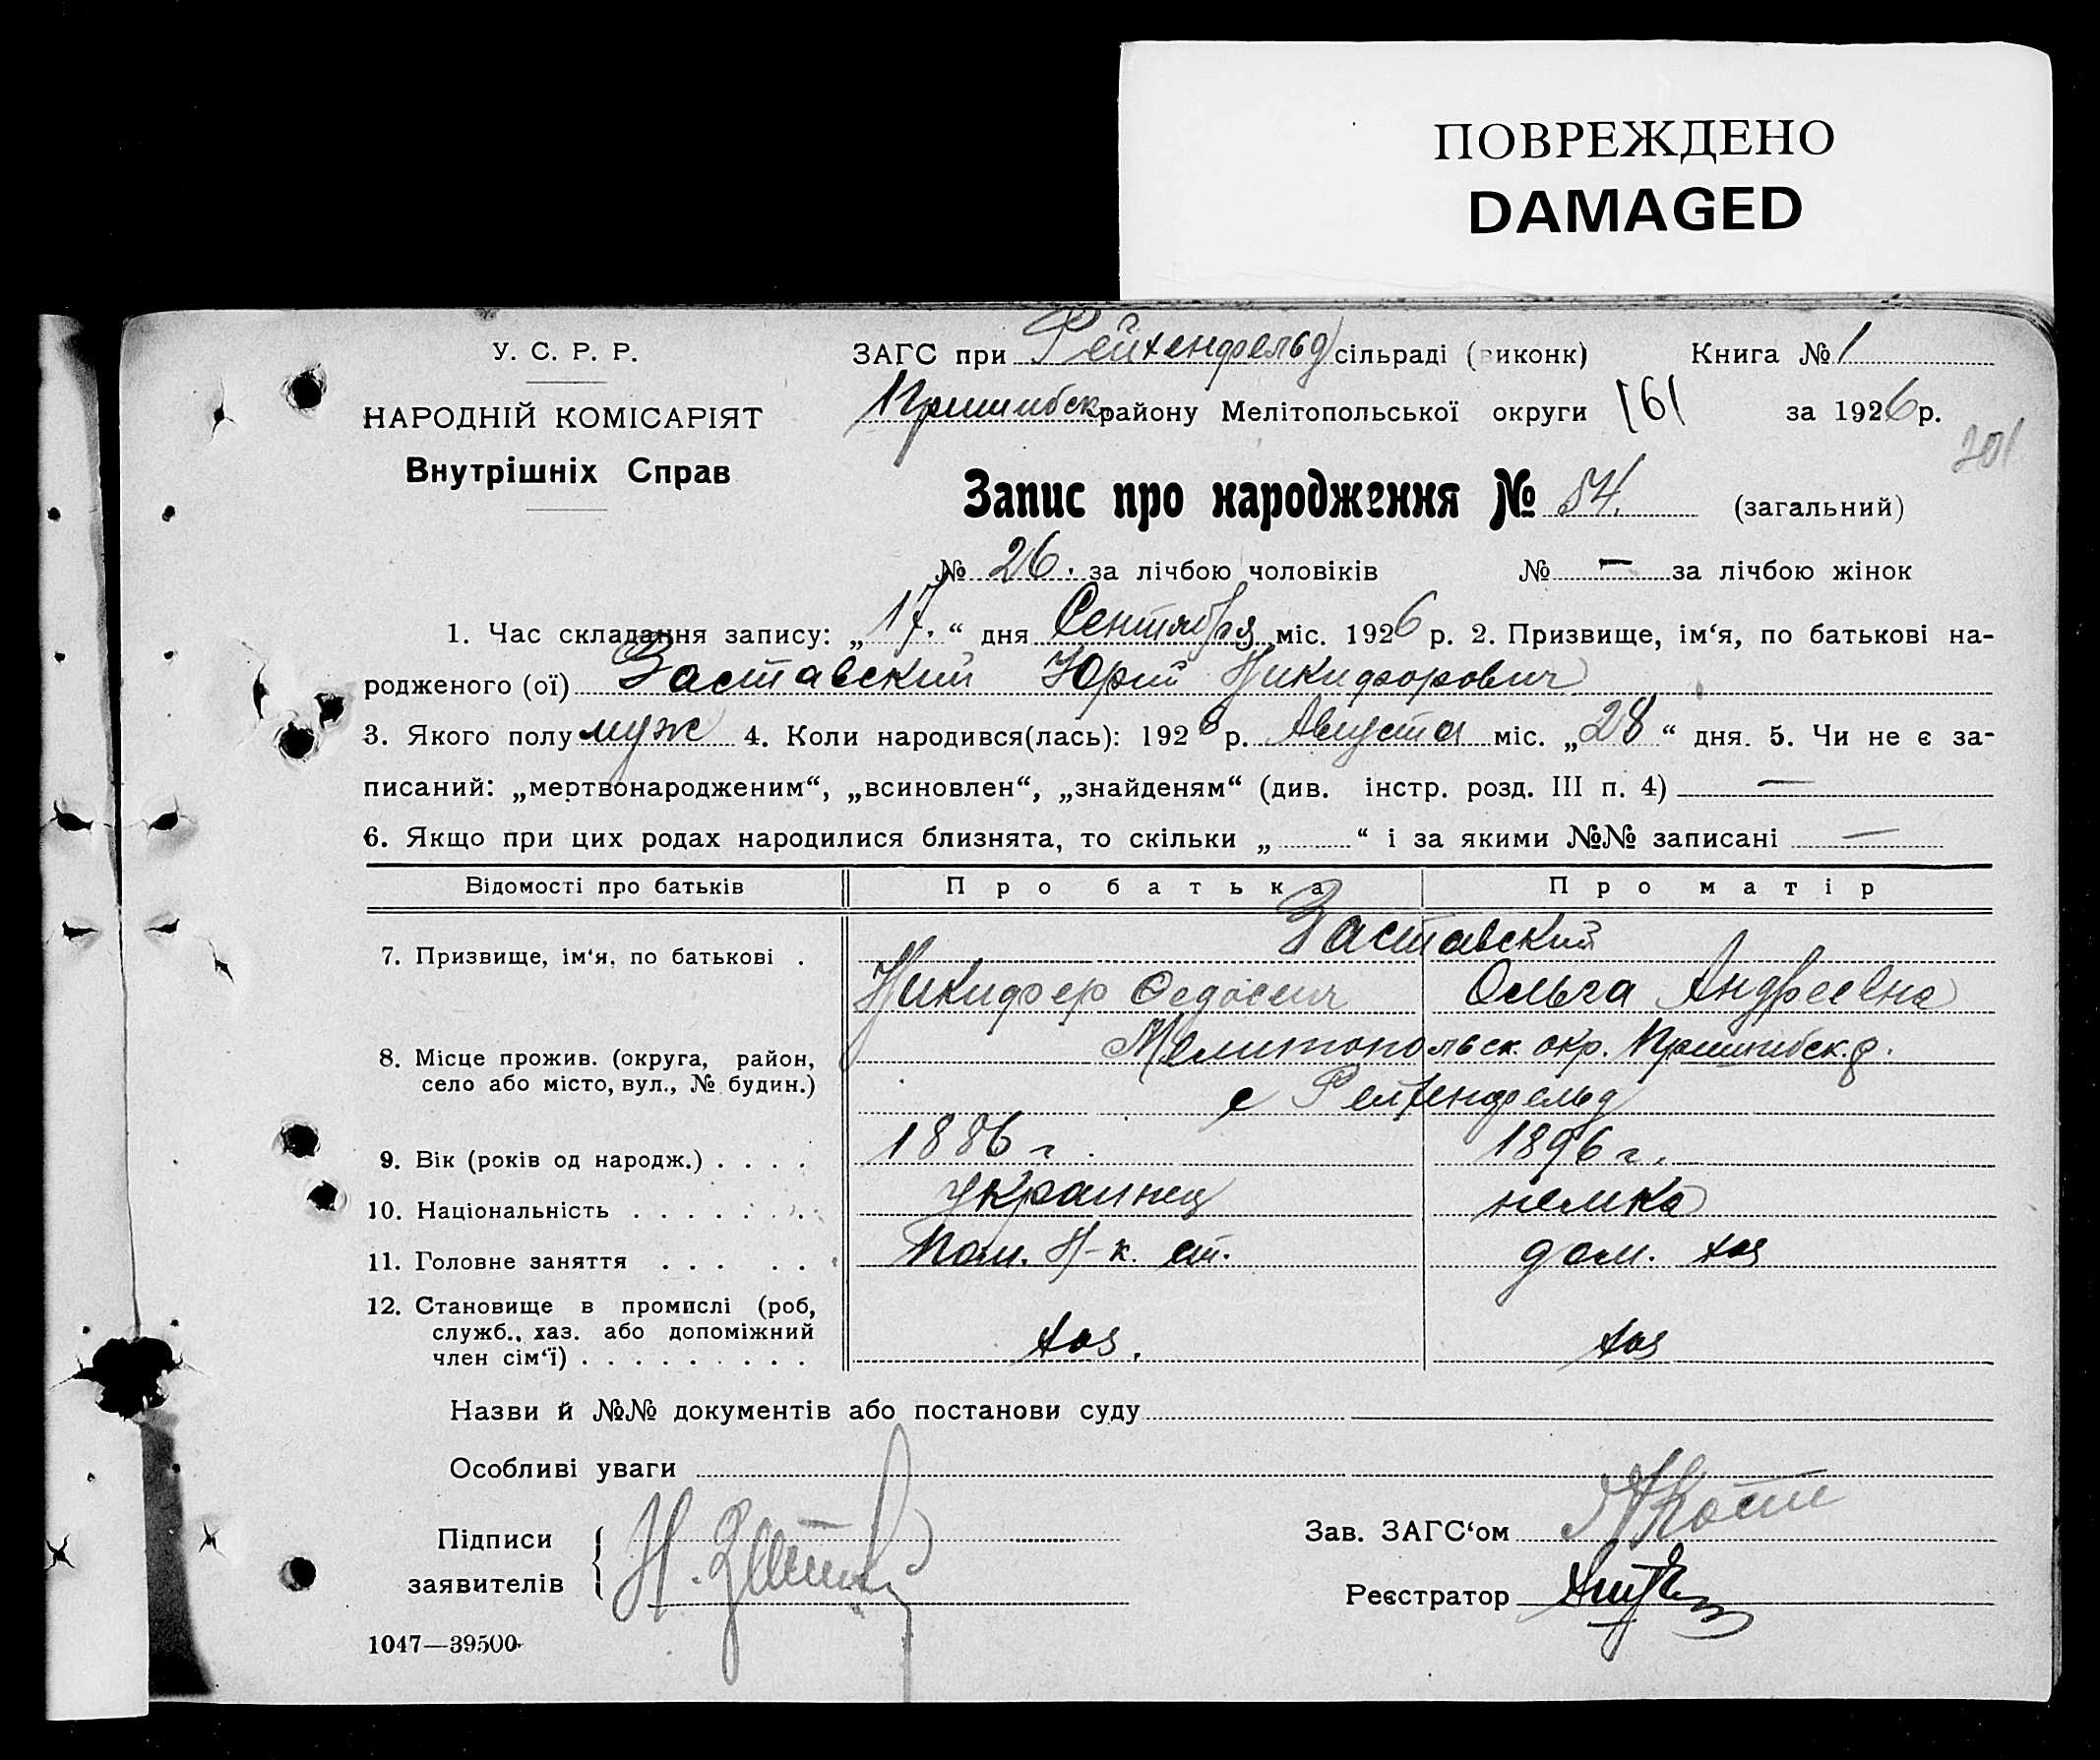 ПОВРЕЖДЕНО
DAMAGED
У. С. Р. Р.
НАРОДНІЙ КОМІСАРІЯТ
Внутрішніх Справ
ЗАГС при Рейхенфельд сільраді (виконк) Книга № 1
Пришибск. району Мелітопольської округи 161 за 1926 р.
201
Запис про народження № 54. (загальний)
№ 26. за лічбою чоловіків № — за лічбою жінок
1. Час складання запису: „17.“ дня Сентября міс. 1926 р. 2. Призвище, ім‘я, по батькові на-
родженого (ої) Заставский Юрий Никифорович
3. Якого полу муж 4. Коли народився(лась): 1926 р. Августа міс. „28“ дня. 5. Чи не є за-
писаний: „мертвонародженим“, „всиновлен“, „знайденям“ (див. інстр. розд. III п. 4) —
6. Якщо при цих родах народилися близнята, то скільки „ “ і за якими №№ записані —
Відомості про батьків Про батька Про матір
7. Призвище, ім‘я, по батькові . Заставский
Никифор Федосеич Ольга Андреевна
8. Місце прожив. (округа, район, село або місто, вул., № будин.) Мелитопольск. окр. Пришибск. р.
с Рейхенфельд
9. Вік (років од народж.) . . . . 1886 г. 1896 г.
10. Національність . . . . . . . украинец немка
11. Головне заняття . . . . . . Пом. Н-к. ст. дом. хоз
12. Становище в промислі (роб,
служб., хаз. або допоміжний
член сім‘ї) . . . . . . . . . хоз. хоз
Назви й №№ документів або постанови суду
Особливі уваги
Підписи
заявителів
Зав. ЗАГС‘ом
Реєстратор
1047—39500